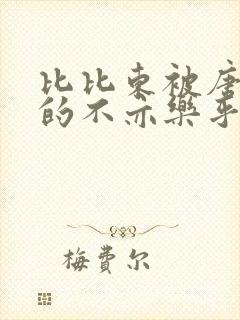 比比东被唐
的不亦乐乎
梅费尔